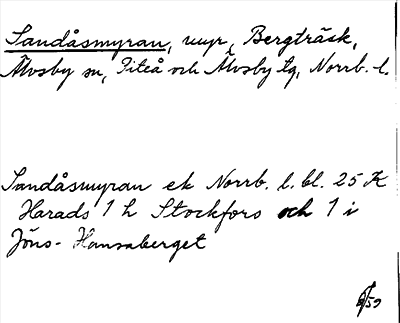 Sandåsmyran, myr, Bergträsk,
Älvsby sn, Piteå och Älvsby tg, Norrb. l.
Sandåsmyran ek Norrb. l. bl. 25 K
Harads 1 h Stockfors och 1 i
Jöns-Hansaberget